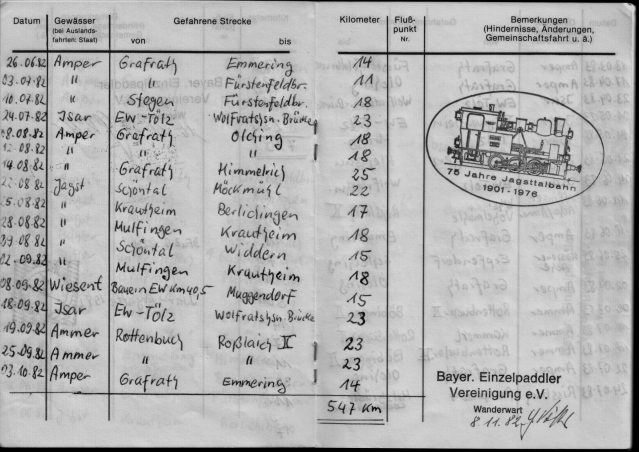 Datum Gewässer Gefahrene Strecke Kilometer Fluß- Bemerkungen
(bei Auslands- punkt (Hindernisse, Änderungen,
fahrten: Staat) von bis Nr. Gemeinschaftsfahrt u. ä.)
26.06.82 Amper Grafrath Emmering 14
03.07.82 " " Fürstenfeldbr. 11
10.07.82 " Stegen Fürstenfeldbr. 18
24.07.82 Isar EW-Tölz Wolfratshsn. Brücke 23
08.08.82 Amper Grafrath Olching 18
12.08.82 " " " 18
14.08.82 " Grafrath Himmelrich 25
22.08.82 Jagst Schöntal Möckmühl 22
25.08.82 " Krautheim Berlichingen 17
28.08.82 " Mulfingen Krautheim 18
29.08.82 " Schöntal Widdern 15
02.09.82 " Mulfingen Krautheim 18
08.09.82 Wiesent Bayern EW Km 40,5 Muggendorf 15
18.09.82 Isar EW-Tölz Wolfratshsn. Brücke 23
19.09.82 Ammer Rottenbuch Roßlaich II 23
25.09.82 Ammer " " 23
03.10.82 Amper Grafrath Emmering 14
547 Km
75 Jahre Jagsttalbahn
1901-1976
Bayer. Einzelpaddler
Vereinigung e.V.
Wanderwart
8.11.82